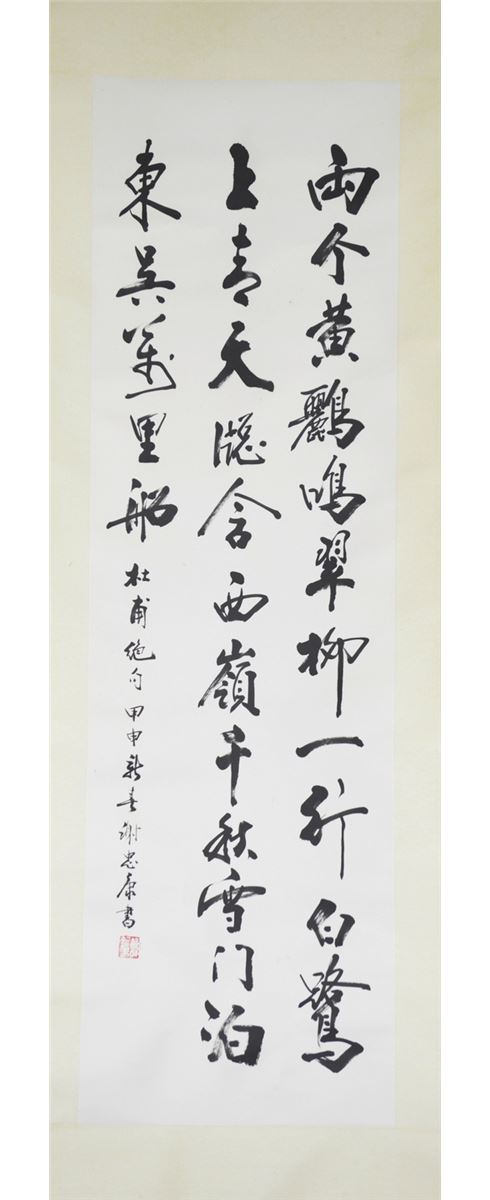 両个黄鸝鳴翠柳一行白鷺
上青天牕含西嶺千秋雪门泊
東吳萬里船 杜甫绝句 甲申新春 谢忠康書